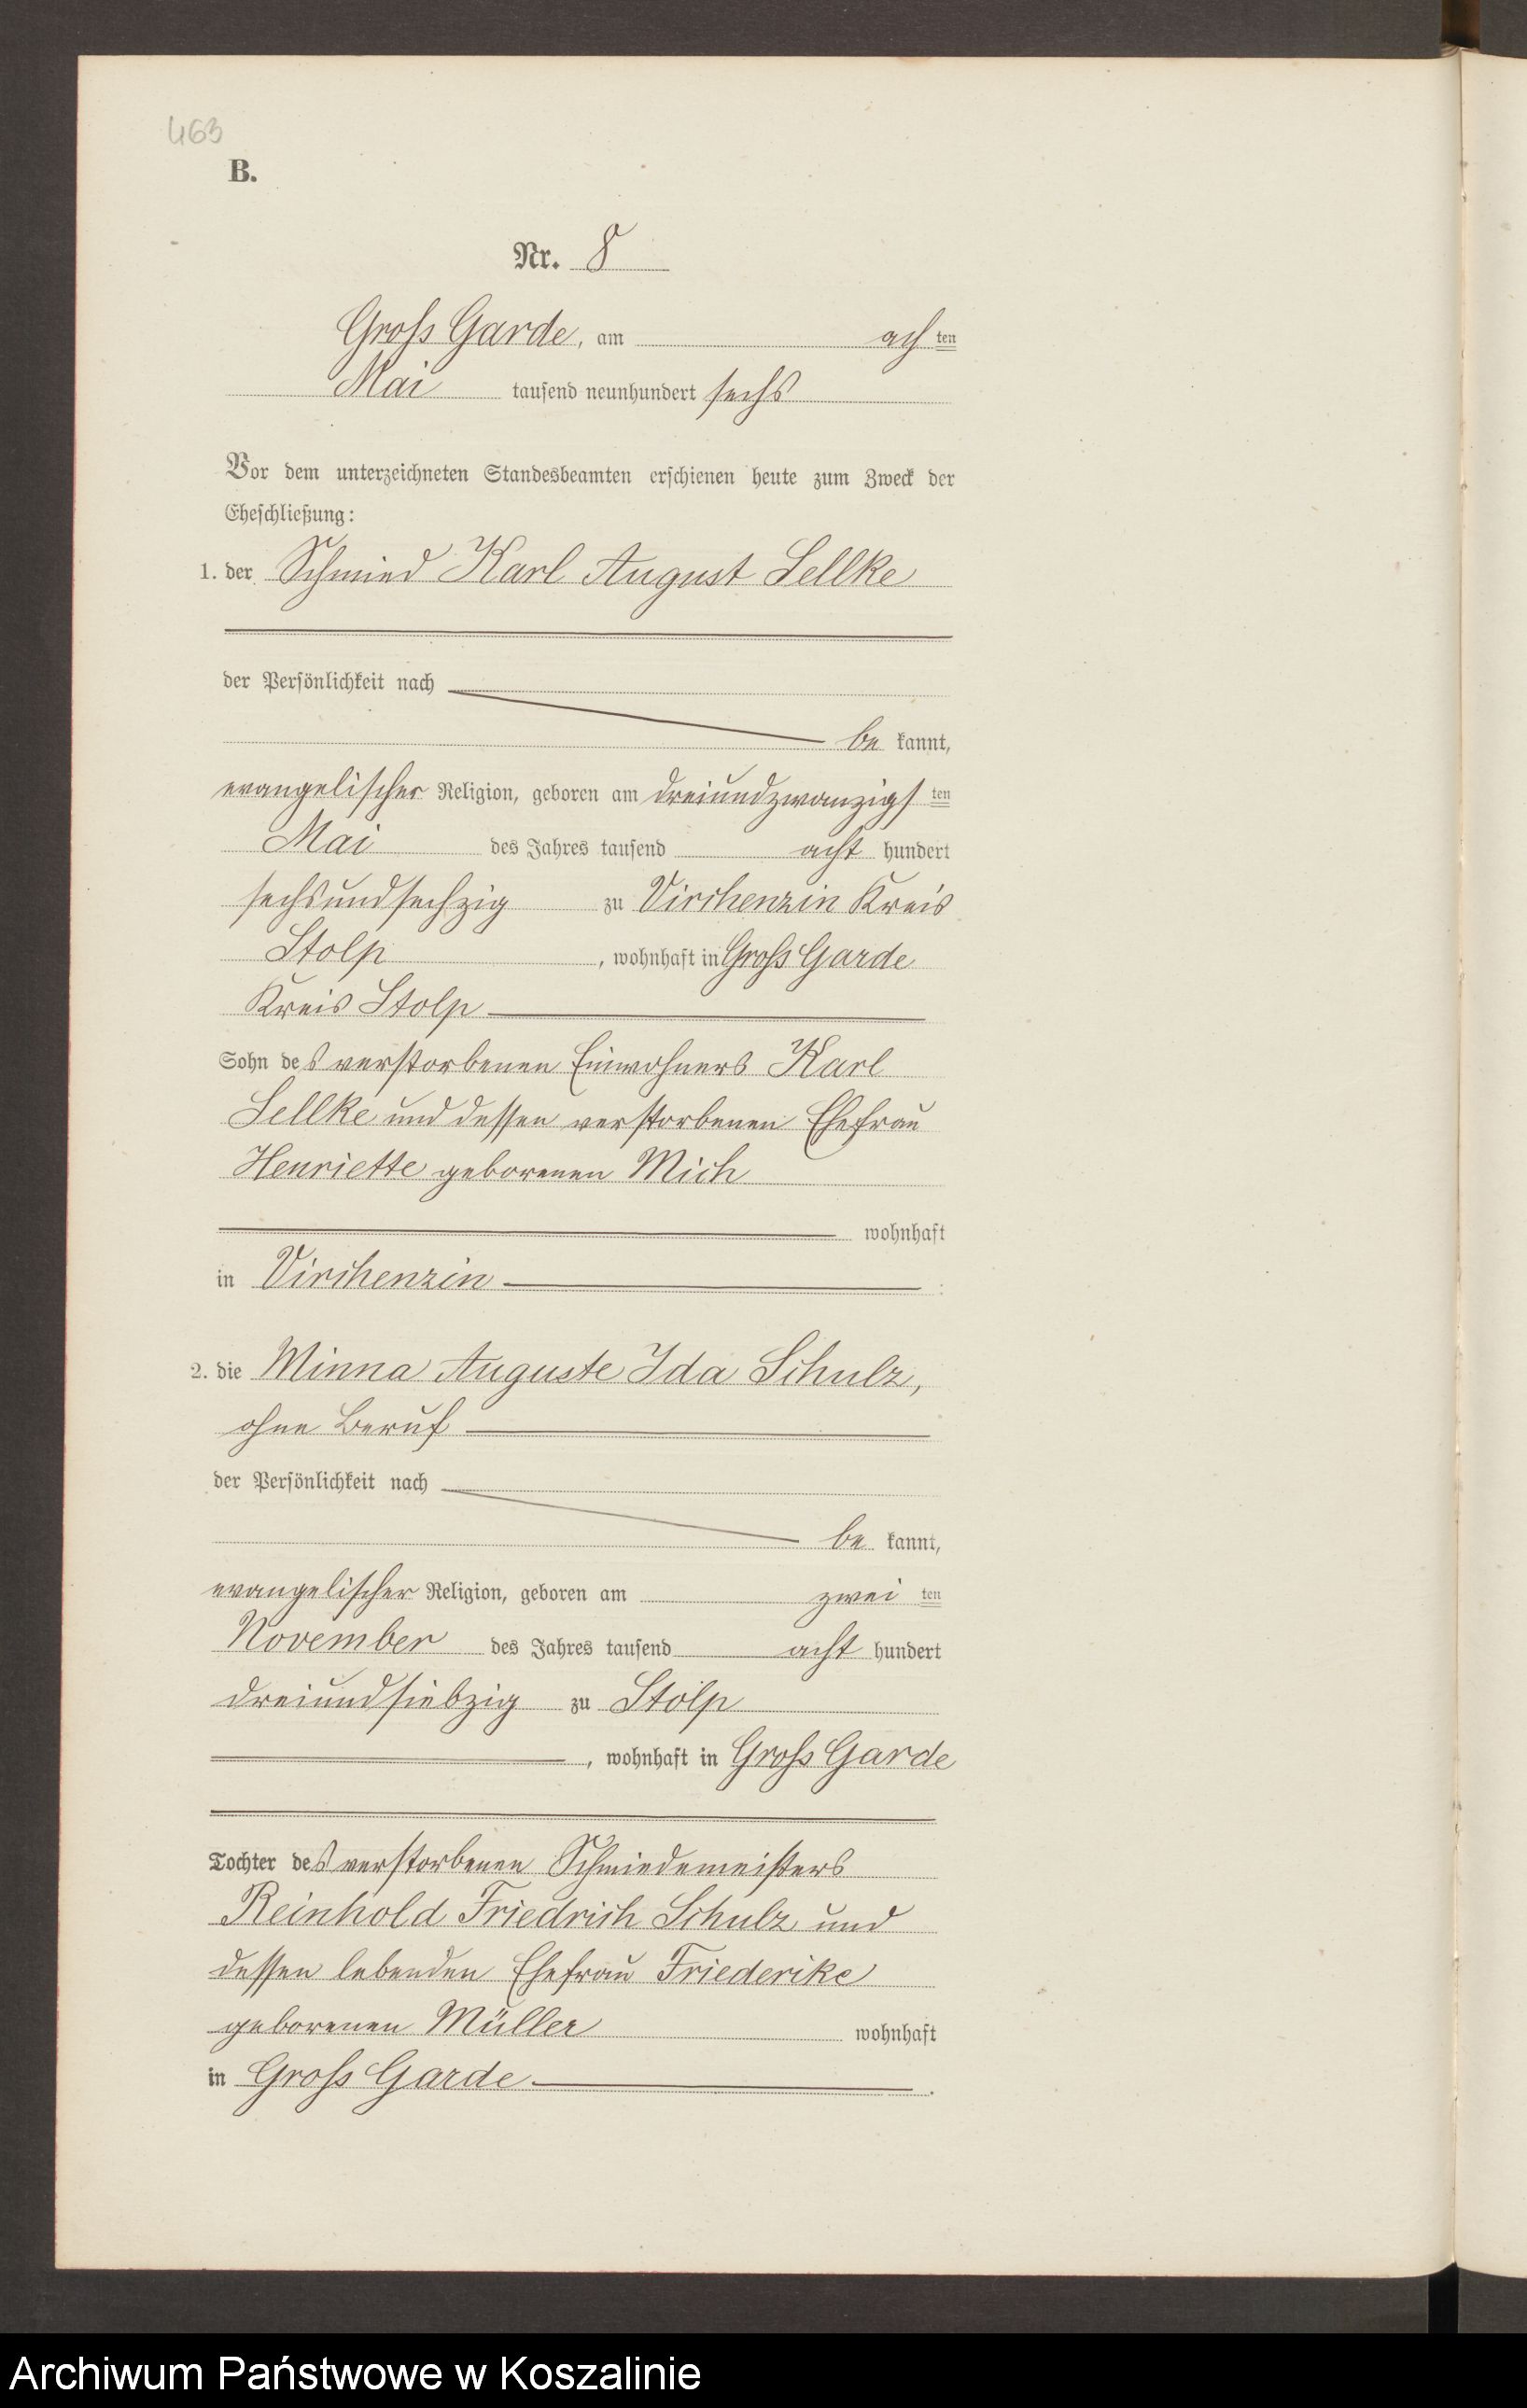 463
B.
Nr. 8
Gross Garde, am ach ten
Mai tausend neunhundert sechs
Vor dem unterzeichneten Standesbeamten erschienen heute zum Zweck der
Eheschließung:
1. der Schmied Karl August Sellke
der Persönlichkeit nach
be kannt,
evangelischer Religion, geboren am dreiundzwanzigsten
Mai des Jahres tausend acht hundert
sechsundsechzig zu Virchenzin Kreis
Stolp, wohnhaft in Gross Garde
Kreis Stolp
Sohn des verstorbenen Einwohners Karl
Sellke und dessen verstorbenen Ehefrau
Henriette geborenen Mich
wohnhaft
in Virchenzin
2. die Minna Auguste Ida Schulz,
ohne Beruf
der Persönlichkeit nach
be kannt,
evangelischer Religion, geboren am zwei ten
November des Jahres tausend acht hundert
dreiundsiebzig zu Stolp
, wohnhaft in Gross Garde
Tochter des verstorbenen Schmiedemeisters
Reinhold Friedrich Schulz und
dessen lebenden Ehefrau Friederike
geborenen Müller wohnhaft
in Gross Garde.
Archiwum Państwowe w Koszalinie